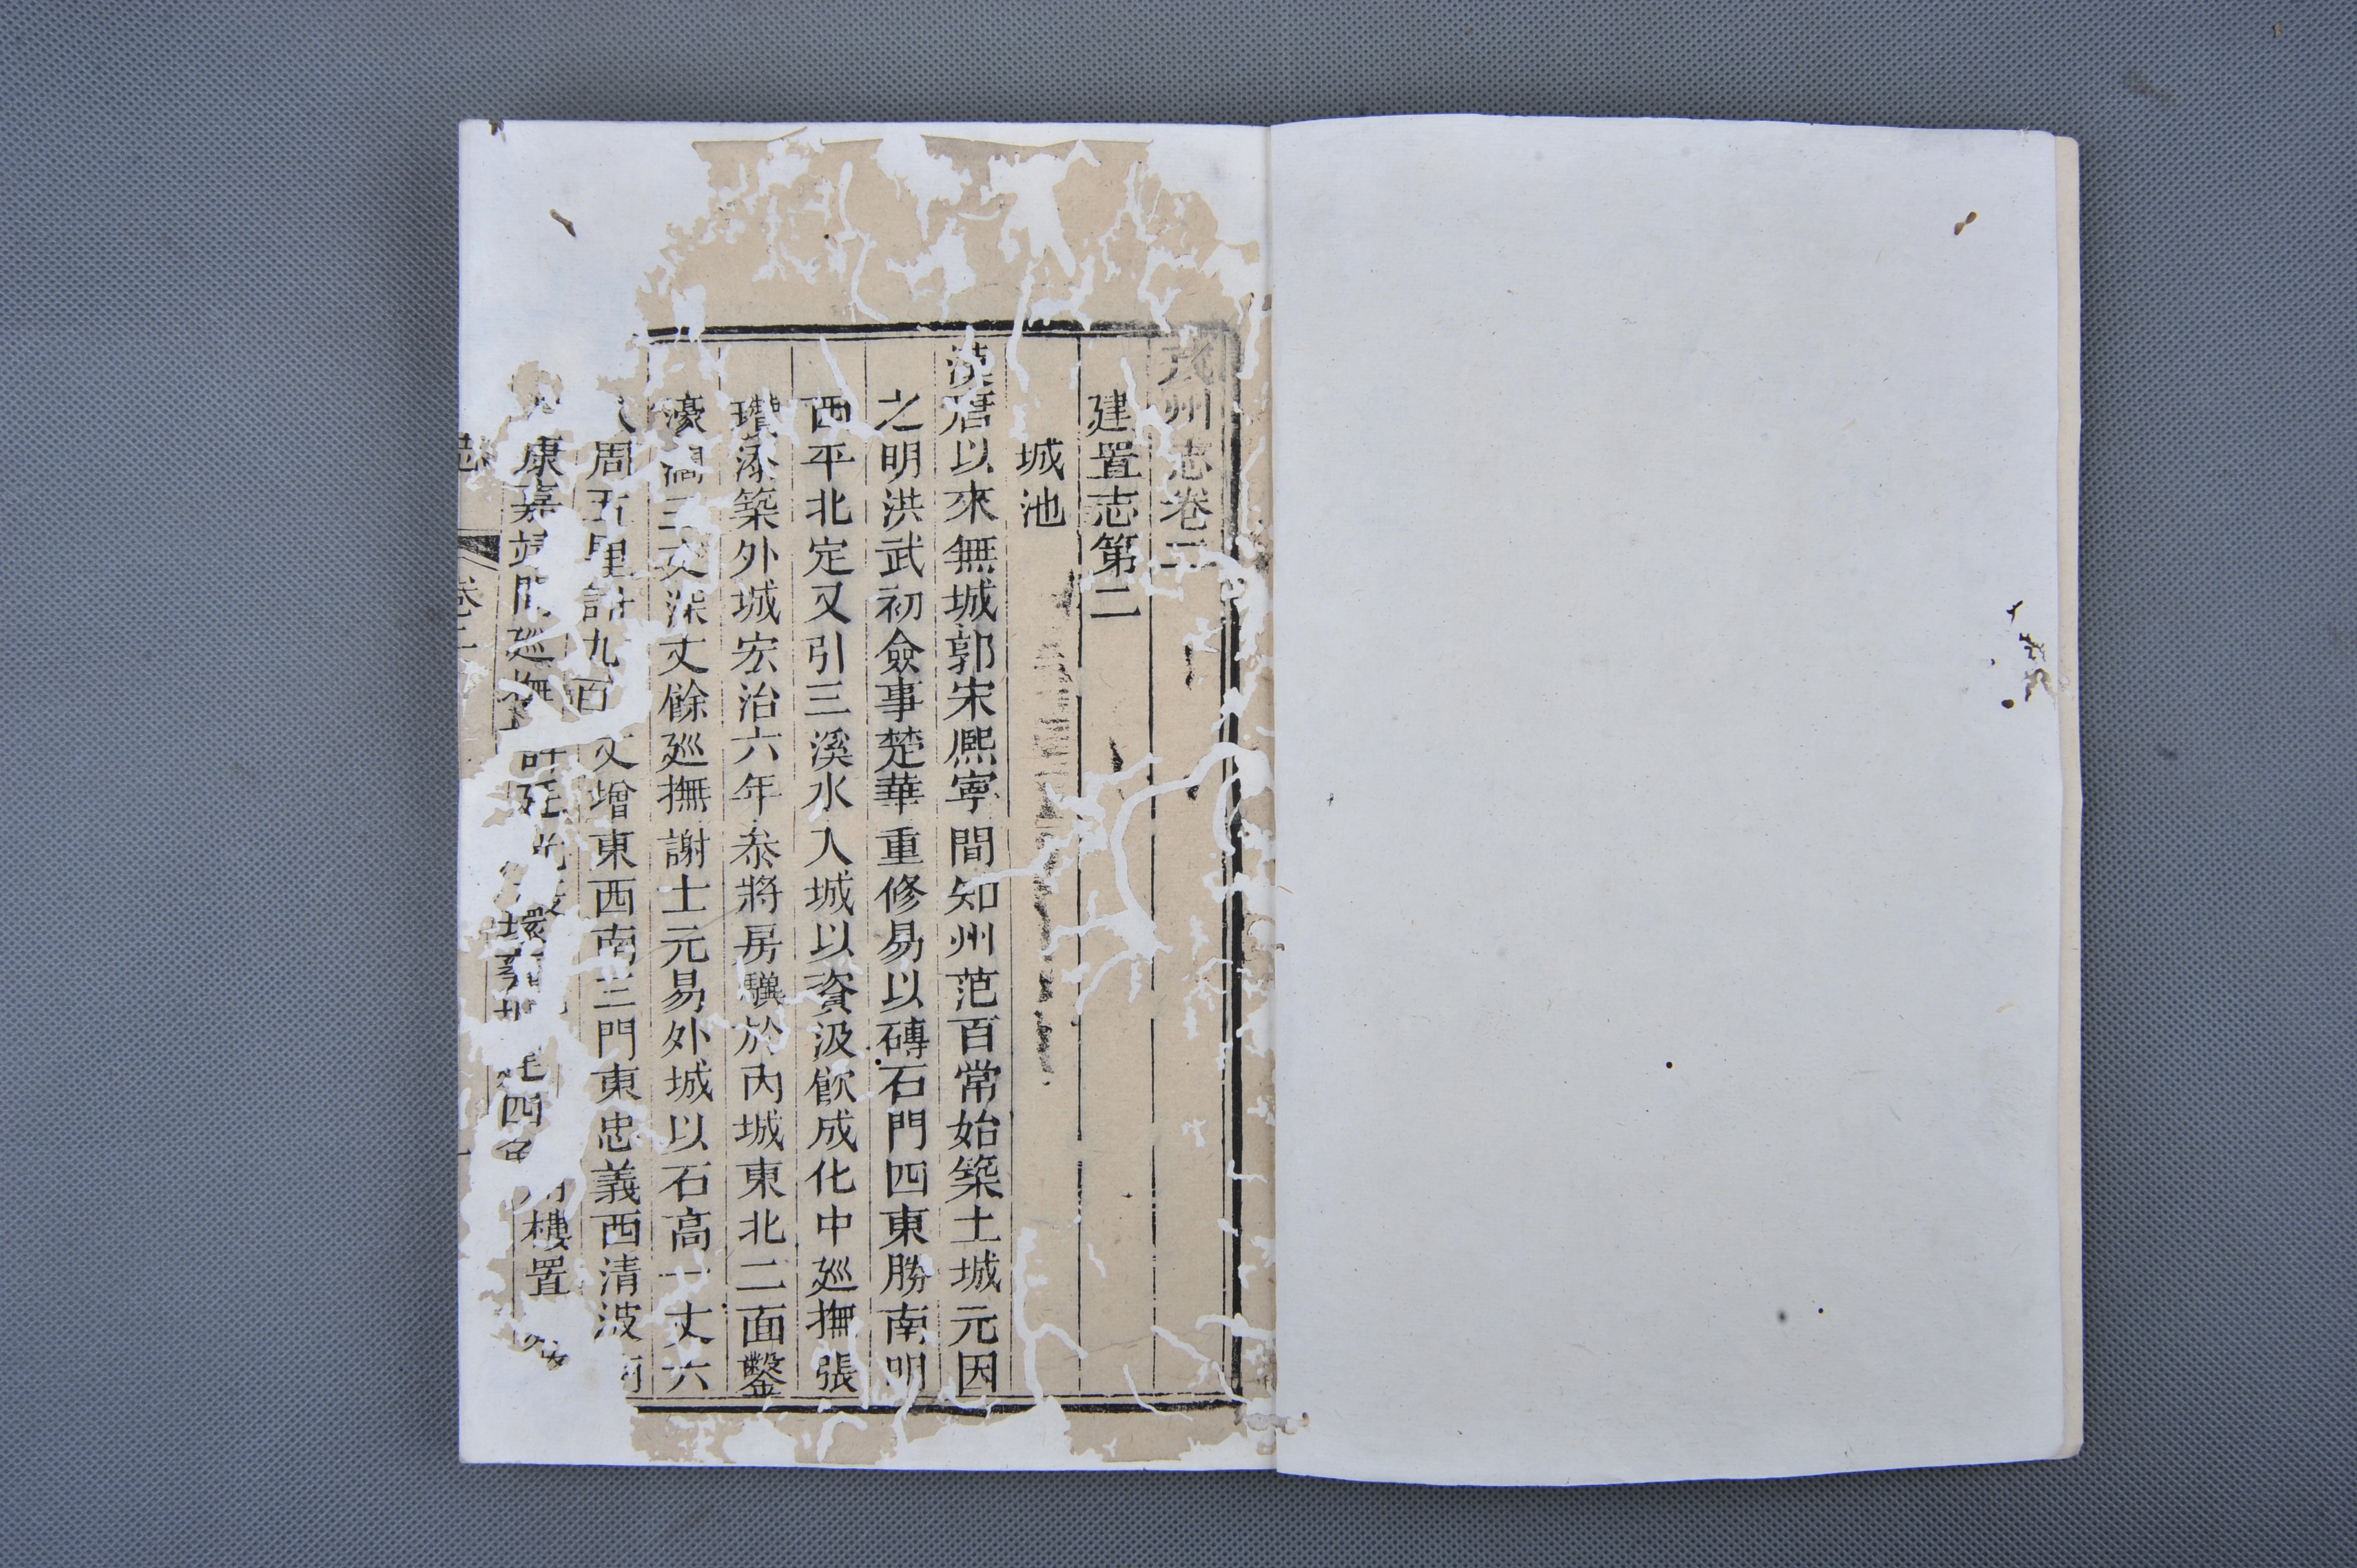 茂州志卷二
建置志第二
城池
漢唐以來無城郭宋熙寧間知州范百常始築土城元因
之明洪武初僉事楚華重修易以磚石門四東勝南明
西平北定又引三溪水入城以資汲飲成化中廵撫張
瓚添築外城宏治六年叅將房驥於內城東北二面鑿
濠濶三丈深丈餘廵撫謝士元易外城以石高一丈六
周五里計九百丈增東西南三門東忠義西清波南
康嘉靖間廵撫許廷光 環 四角 樓置
志 卷二